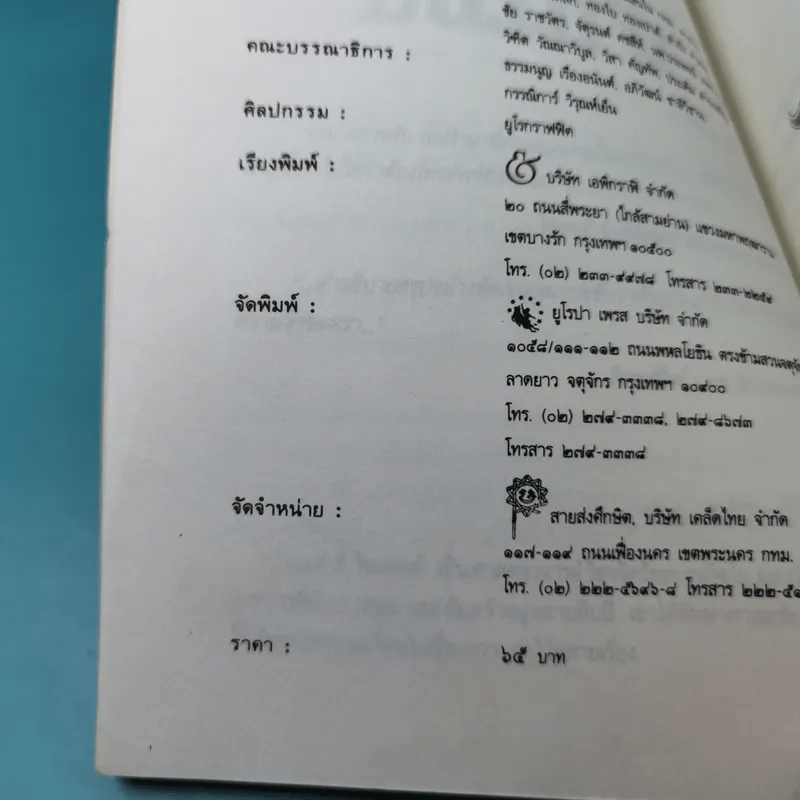 ทองใบ ทองเปาด์,
ชัย ราชวัตร, จัตุรนต์ คชสีห์,
คณะบรรณาธิการ : วิฑิต วัณณาวิบูล, วิสา คัญทัพ, ประเดิม
ธรรมนูญ เรืองอนันต์, อภิวัฒน์
กรรณิการ์ วิรุณห์เย็น
ศิลปกรรม : ยูโรกราฟฟิค
เรียงพิมพ์ : บริษัท เอพิกราฟิ จำกัด
๒๐ ถนนสี่พระยา (ใกล้สามย่าน) แขวงมหาพฤฒาราม
เขตบางรัก กรุงเทพฯ ๑๐๕๐๐
โทร. (๐๒) ๒๓๓-๔๔๗๘ โทรสาร ๒๓๓-๒๒๕๔
จัดพิมพ์ : ยูโรปา เพรส บริษัท จำกัด
๑๐๕๘/๑๑๑-๑๑๒ ถนนพหลโยธิน ตรงข้ามสวนจตุจักร
ลาดยาว จตุจักร กรุงเทพฯ ๑๐๙๐๐
โทร. (๐๒) ๒๗๙-๓๓๓๘, ๒๗๙-๘๖๗๓
โทรสาร ๒๗๙-๓๓๓๘
จัดจำหน่าย : สายส่งศึกษิต, บริษัท เคล็ดไทย จำกัด
๑๑๗-๑๑๙ ถนนเฟื่องนคร เขตพระนคร กทม.
โทร. (๐๒) ๒๒๒-๕๖๙๖-๘ โทรสาร ๒๒๒-๕๑
ราคา : ๖๕ บาท